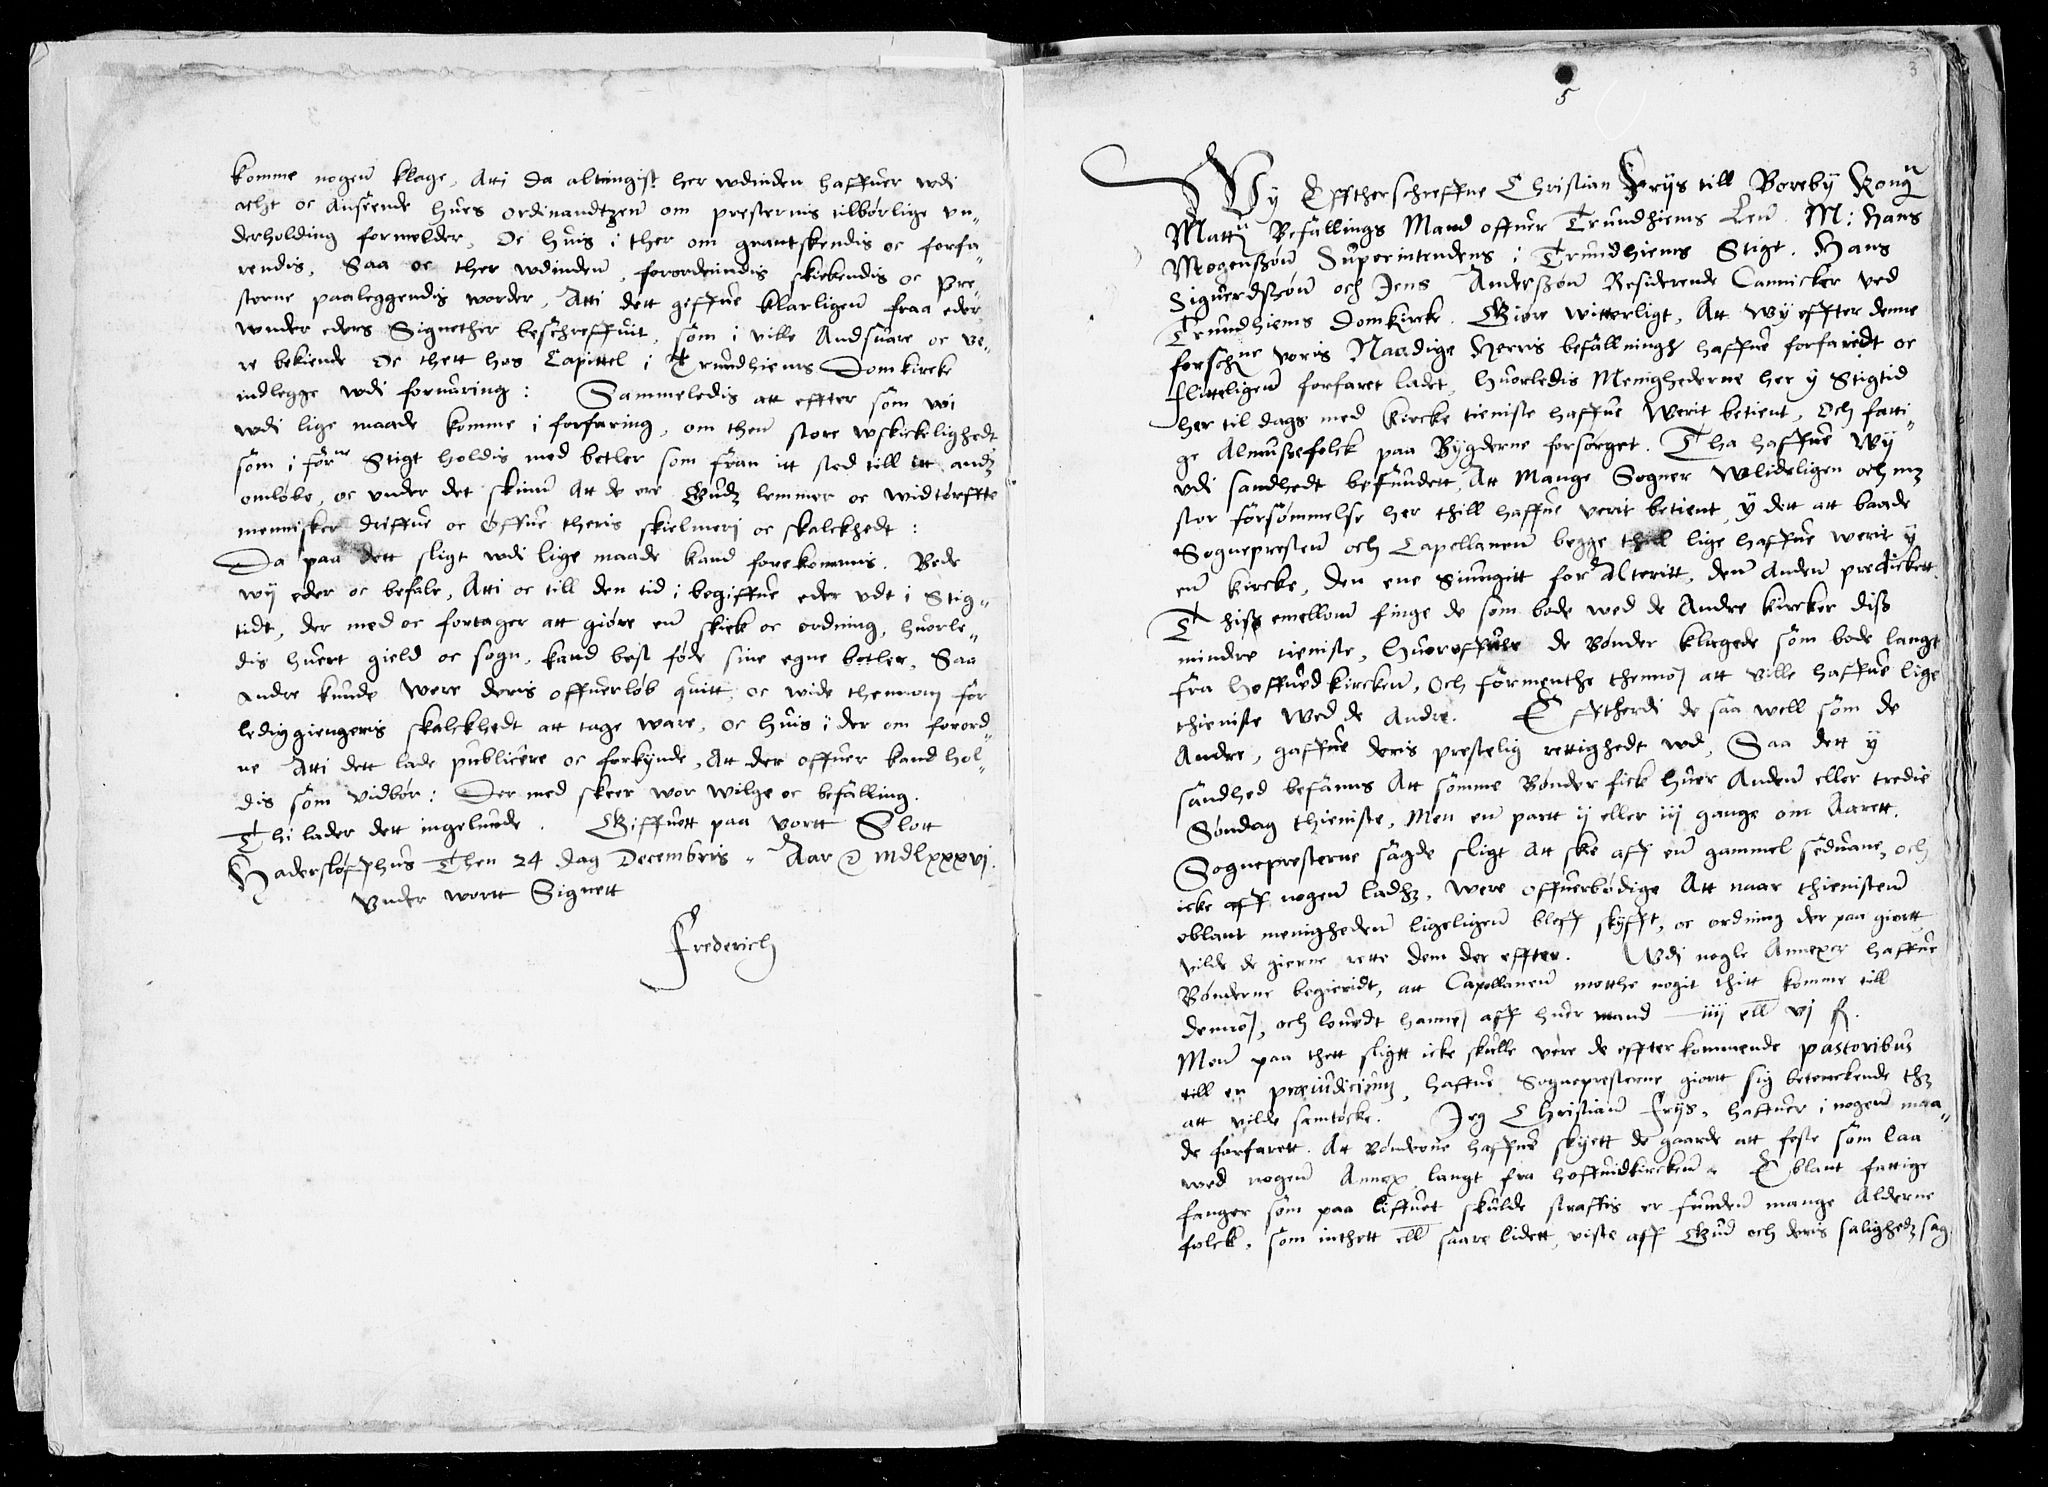 komme nogen klage, Atti da altingist her wdinden haffuer wdi
acht oc Anseende hues ordinandtzen om presternis tilbørlige vn„
derholding formelder, Oc huis i ther om grantskendis oc forfa
rendis, Saa oc ther wdinden, forordnindis skickendis oc pre„
sterne paaleggendis worder, Atti dett giffue klarligen fraa eder
wnder eders Signether beschreffuit, som i ville Andsuare oc ve„
re bekiende Oc thett hos Capittel i Trundhiems Domkircke
indlegge wdi foruaring: Sammeledis att effter som wi
wdi lige maade komme i forfaring, om then store wskickelighedt
som i forne Stigt holdis med betler som fran itt sted till itt andz
omløbe, oc vnder det skinn Att de ere Gudz lemmer oc widtørffte
mennisker driffue oc Øffue theris skielmeri oc skalckhedt:
Da paa dett sligt wdi lige maade kand forekommis. Bede
wij eder oc befale, Atti oc till den tid i begiffue eder vdt i Stig„
tidt, der med oc fortager att giøre en skick oc ordning, huorle„
dis huert gield oc sogn, kand best føde sine egne betler, Saa
Andre kunde were deris offuerløb quitt, oc wide thennom for
lediggiengeris skalckhedt att tage ware, oc huis i der om forord„
ne Atti dett lade publicere oc forkynde, Att der offuer kand hol„
dis som vidbør: Der med skeer wor wilge oc befalling.
Thi lader dett ingelunde. Giffuett paa vortt Slott
Hadersløffhus Then 24 dag Decembris Aar mdlxxxvj.
Vnder wortt Signett
Frederich
3
5
Wy Efftherschreffne Christian Frijs till Boreby Kong
Matt Befallings Mand offuer Trundhiems Len M: Hans
Mogensøn Superintendens i Trundhiems Stigt. Hans
Siguerdsøn och Jens Andersøn Residerende Cannicker ved
Trundhiems Domkircke. Giøre witterligt, Att wy effter denne
forschne voris Naadige Herris befallningh haffue forfaridt oc
flitteligen forfaret ladet, huorledis Menighederne her ÿ Stigtid
her til dags med kircke tieniste haffue Werit betient, Och fatti„
ge Almusefolck paa Bygderne forsørget. Tha haffue Wy
vdi sandhedt befundett, Att Mange Sogner Wlideligen och mz
stor forsømmelse her thill haffue verit betient, ÿ dett att baade
Sognepresten och Capellanen begge thill lige haffue werit ÿ
en kircke, den ene siungitt for Alteritt, den Anden predickett.
Thiss emellom finge de som bode wed de Andre kircker diss
mindre tieniste, huoroffuer de Bønder klagede som bode langt
fra hoffuedkircken, Och formenthe thennom att ville haffue lige
thieniste Wed de Andre. Efftherdi de saa well som de
Andre, gaffue deris prestelig rettighedt wd, Saa dett ÿ
sandhed befanns Att somme Bønder fick huer Anden eller tredie
Søndag thieniste, Men en partt ij eller iij gange om Aarett.
Sognepresterne sagde sligt Att ske aff en gammel seduane, och
icke aff nogen ladhz, were offuerbødige Att naar thienisten
eblant menigheden ligeligen bleff skyfft, oc ordning der paa giortt
vilde de gierne rette dem der effter. Wdi nogle Annexer haffue
Bønderne begieridt, att Capellanen motthe nogit thitt komme till
dennom, och louedt hannem aff huer mand iiij ell vj s.
Men paa thett sligtt icke skulle være de effterkommende pastoribus
till en præiudicium, haffue Sognepresterne giortt sig betenckende thz
att vilde samtøcke. Jeg Christian Frijs, haffuer i nogen maa„
de forfarett. At Bønderne haffue skyett de gaarde att feste som laa
wed nogen Annex langt fra hoffuidkircken. Eblant fattige
fanger som paa liffuet skulde straffis er funden mange Alderne
folck, som inthett ell saare lidett, viste aff Gud och deris salighedz sag